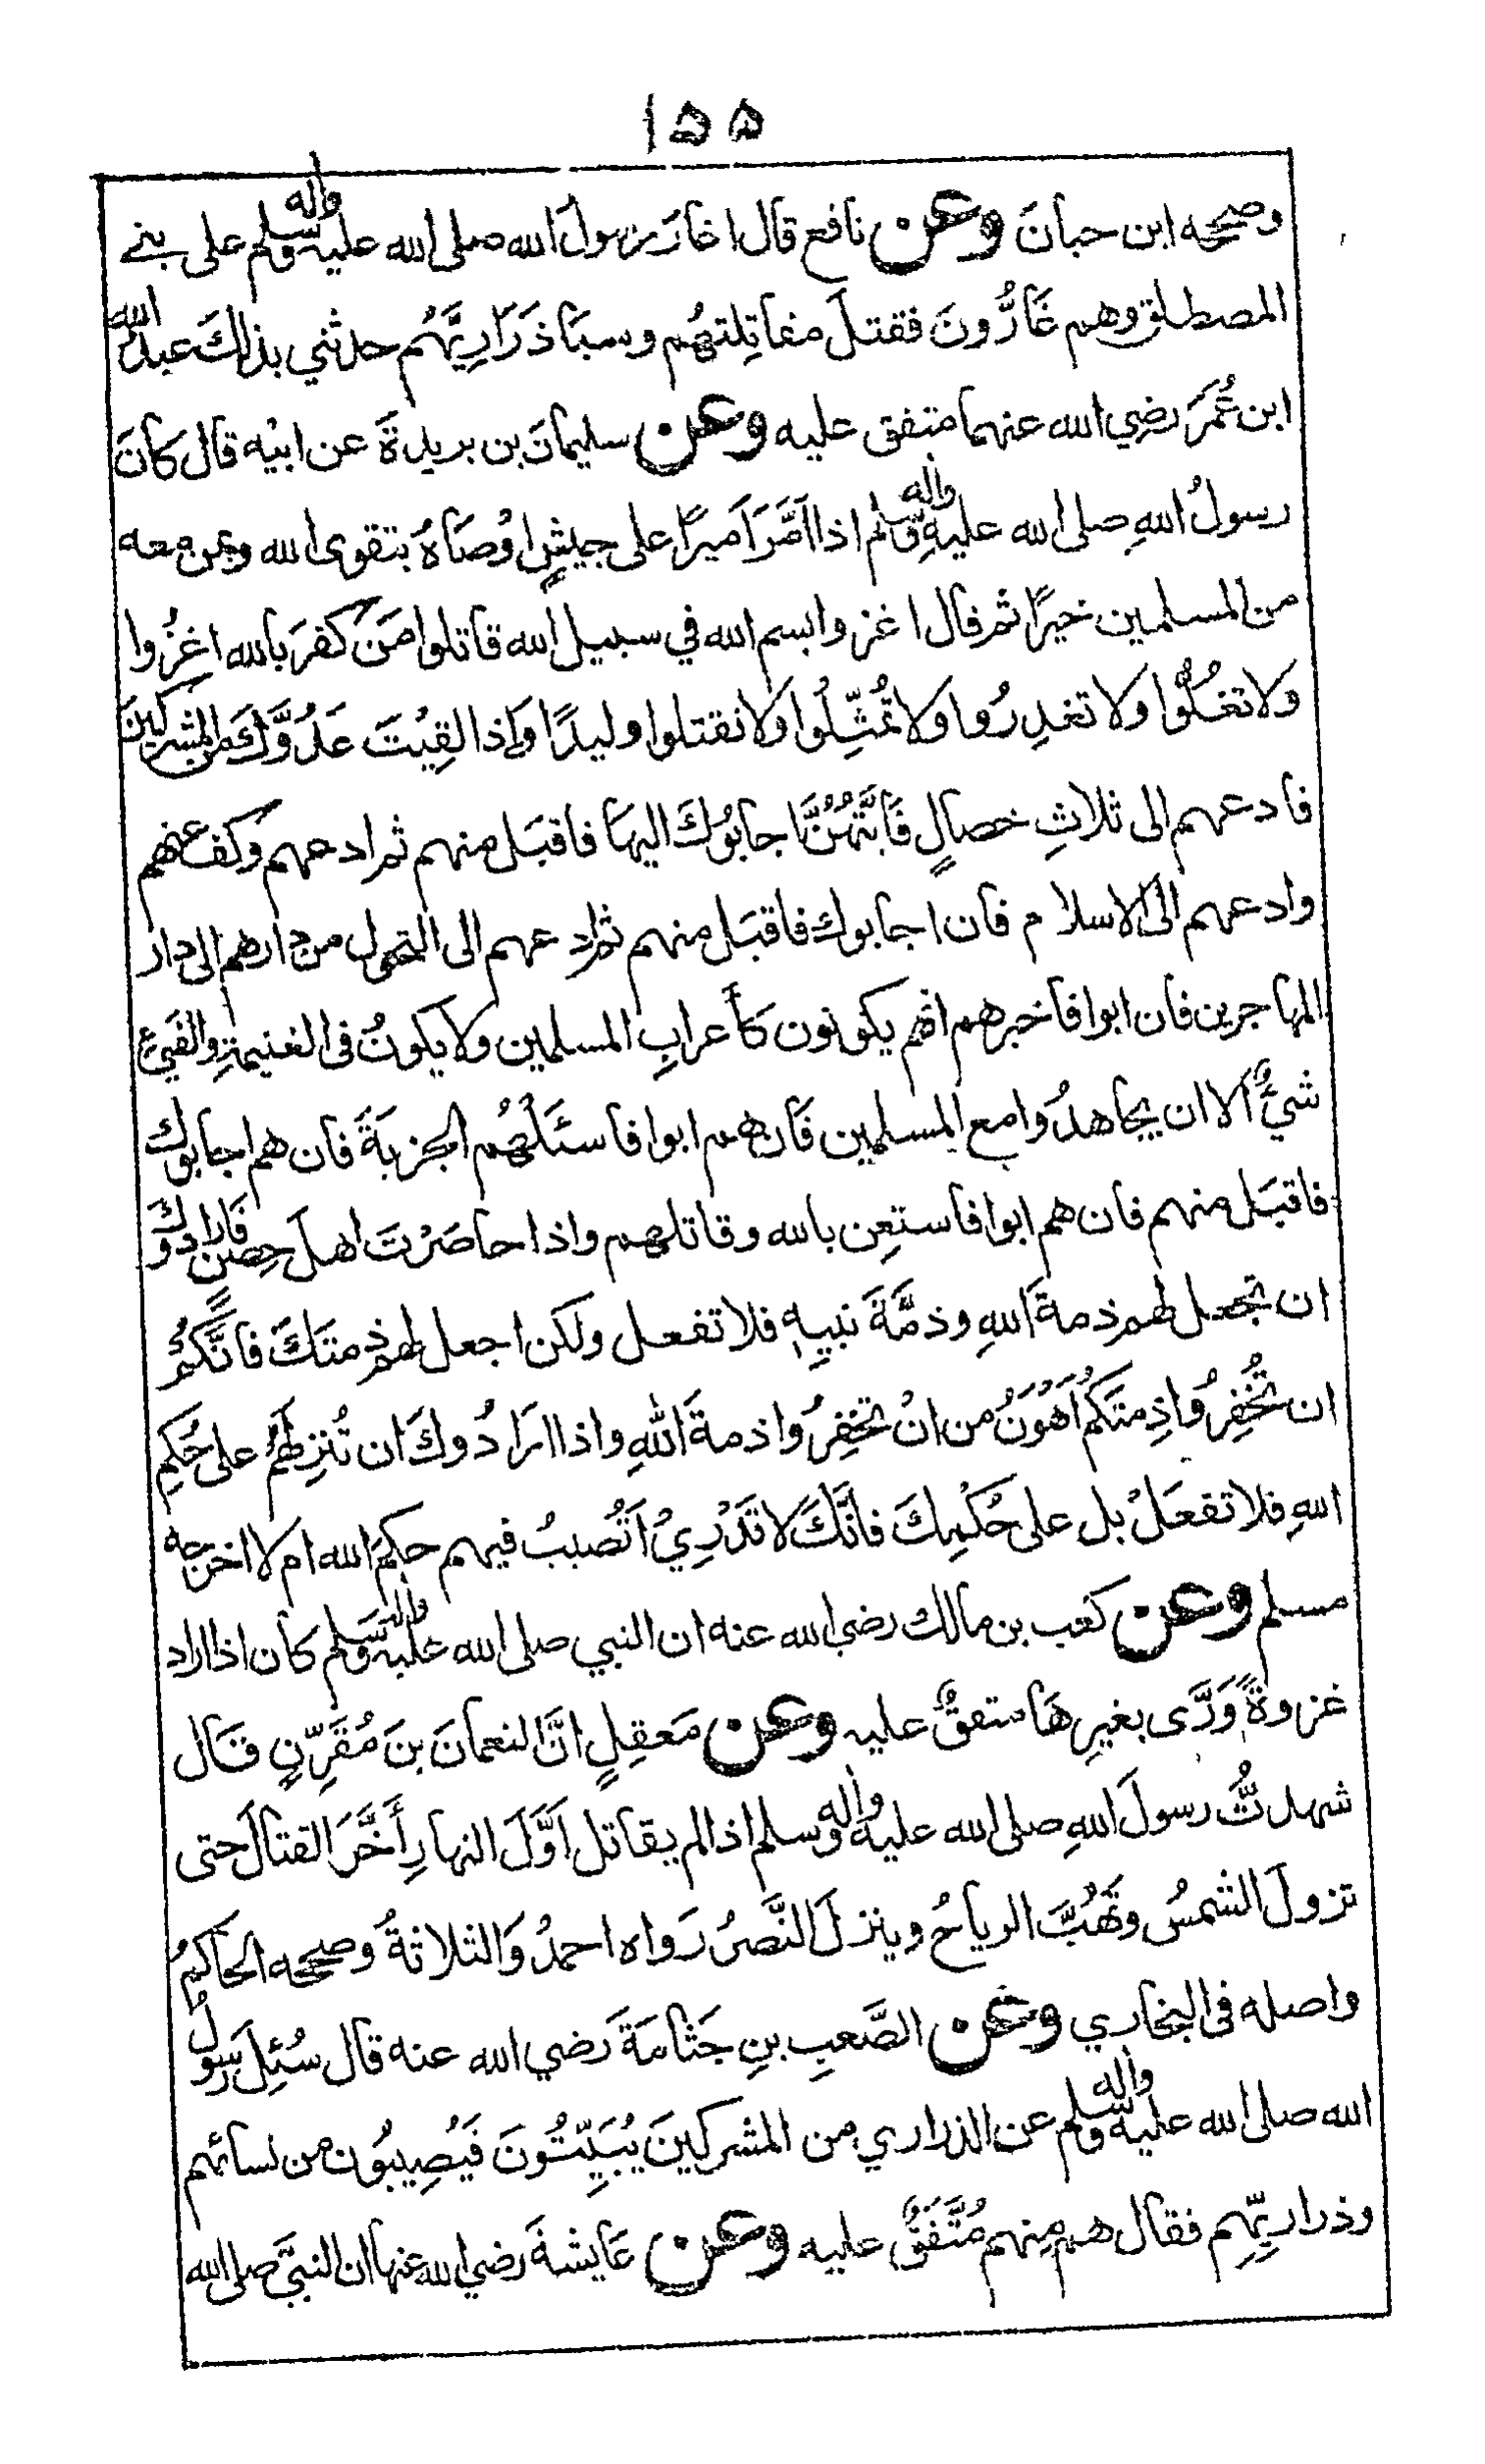 ١٥٥
وصححه ابن حبانَ وعن نافع قال اغارَ رسولُ الله صلى الله عليه واله وسلم على بنے
المصطلق وهم غَارُّونَ فقتلَ مقاتِلتهُم وسبَا ذَرَارِيَّهُم حدثني بذلكَ عبدُ الله
ابن عُمَرَ رضِي الله عنهما متفق عليه وعن سليمانَ بن بريدةَ عن ابيْه قال كانَ
رسولُ اللهِ صلى الله عليهِ واله وسلم اذا اَمَّرَ اَميرًا على جيشٍ اوْصَاهُ بتقوى الله وبمن معه
من المسلمين خيرًا ثم قال اغزوا بسم الله في سبيل الله قاتلوا مَن كفرَ بالله اغزُوا
ولا تغُلُّوا ولا تغدِرُوا ولا تُمثِّلُوا ولا نقتلوا وليدًا وَاِذا لقِيْتَ عَدُوَّكَ من المشركينَ
فادعهم الى ثلاثِ خصالٍ فَاَيَّتُهُنَّ اجابُوكَ اليهَا فاقبَل منهم ثم ادعهم وكف عنهم
وادعهم الى الاسلام فان اجابوك فاقبَل منهم ثم ادعهم الى التحول من دارهم الى دار
المهاجرين فان ابوا فاخبرهم انهم يكونون كأَعرابِ المسلمين ولا يكونُ فى الغنيمةِ والفَيءِ
شيءٌ الا ان يجاهدُوا مع المسلمين فَان هم ابوا فاسئَلْهُم الجزيةَ فان هم اجابوك
فاقبَل منهم فان هم ابوا فاستعِن بالله وقاتلهم واذا حاصَرْتَ اهلَ حِصنٍ فَارادوكَ
ان تجعل لهم ذمةَ اللهِ وذمَّةَ نبيهِ فلا تفعل ولكن اجعل لهم ذمتَكَ فانَّكُمْ
ان تُخْفِرُوا ذِمتَكُم اَهْوَنُ من انْ تخفِرُوا ذمةَ اللهِ واذا ارَادُوكَ ان تُنزِلهُمْ على حُكمِ
اللهِ فلا تفعَلْ بل على حُكْمِكَ فانَّكَ لا تَدْرِيْ اَتُصيبُ فيهم حكمَ الله ام لا اخرجه
مسلم وعن كعب بن مالك رضي الله عنه ان النبي صلى الله عليه واله وسلم كان اذا اراد
غزوةً وَرَّى بغيرِهَا متفقٌ عليه وعن مَعقِلٍ انَّ النعمانَ بنَ مُقَرِّنٍ قَال
شهدتُّ رسولَ اللهِ صلى الله عليه واله وسلم اذا لم يقاتل اَوَّلَ النهارِ أَخَّرَ القتالَ حتى
تزولَ الشمسُ وتَهُبَّ الرياحُ وينزلَ النَّصرُ رَواه احمدُ وَالثلاثةُ وصححه الحاكمُ
واصله فى البخاري وعن الصَّعبِ بنِ جَثامَةَ رَضي الله عنه قال سُئِلَ رَسولُ
الله صلى الله عليه واله وسلم عن الذراري من المشركينَ يُبَيِّتُونَ فَيُصِيبُون من نسائهم
وذراريِّهِم فقال هم منهم مُتَّفَقٌ عليه وعن عَايشةَ رَضي الله عنها ان النبيَّ صلى الله